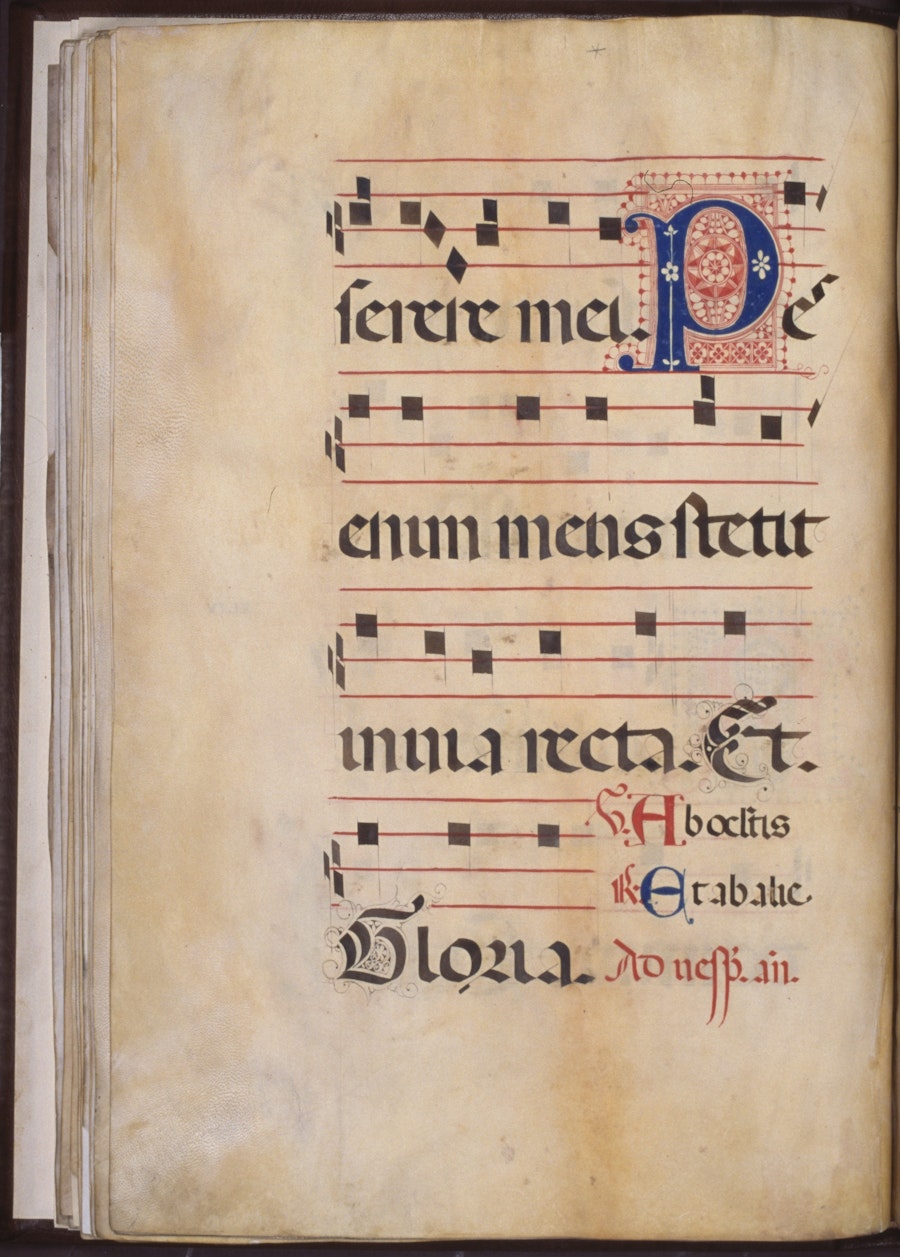 serere mei. Pes
enim meus stetit
in uia recta. Et.
℣. Ab oc̄ltis
℟. Et ab alie.
Gloria. Ad uesp̄. an̄.